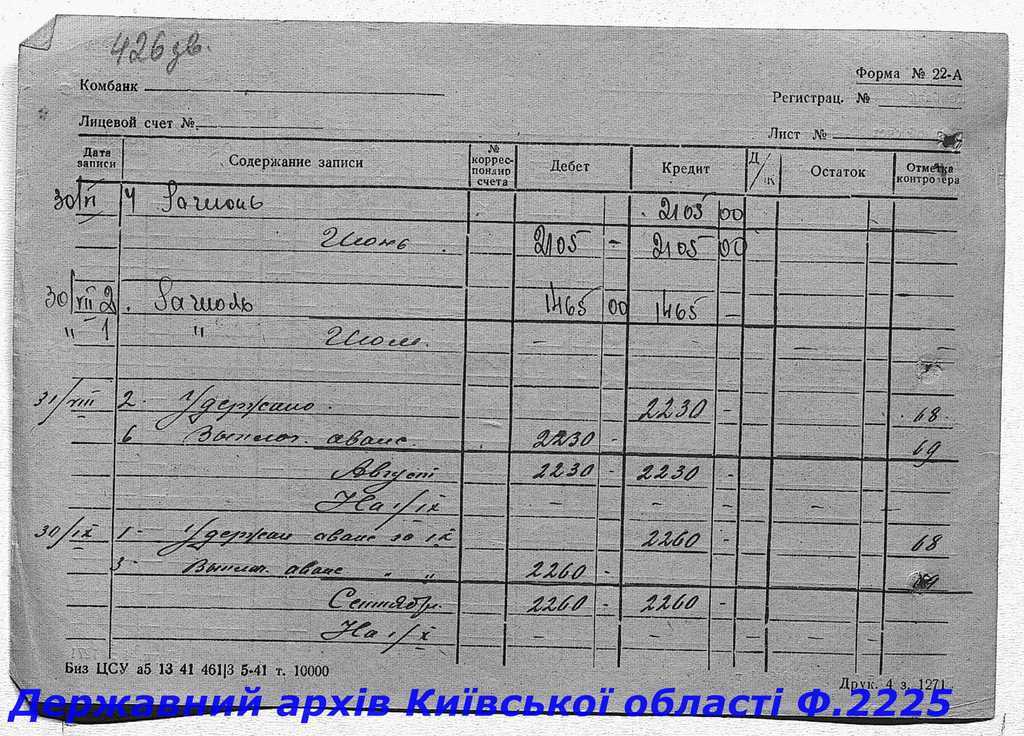 426 зв.
Форма № 22-А
Комбанк
Регистрац. №
Лицевой счет №
Лист №
Дата записи Содержание записи № коррес-пондир счета Дебет Кредит Д/К Остаток Отметка контролера
30/VI 4 2105 00
Июнь 2105 - 2105 00
30/VII 2. 1465 00 1465 -
" 1 " Июль - - -
31/VIII 2. Удержано. 2230 - 68
6 Выплач. аванс. 2230 - 69
Август 2230 - 2230 -
На 1/IX - - - -
30/IX 1- Удержан аванс за IX 2260 - 68
3- Выплач. аванс " " 2260 -
Сентябр. 2260 - 2260 -
На 1/X - - - -
Биз ЦСУ а5 13 41 461|3 5-41 т. 10000
Друк. 4 з. 1271
Державний архів Київської області Ф.2225